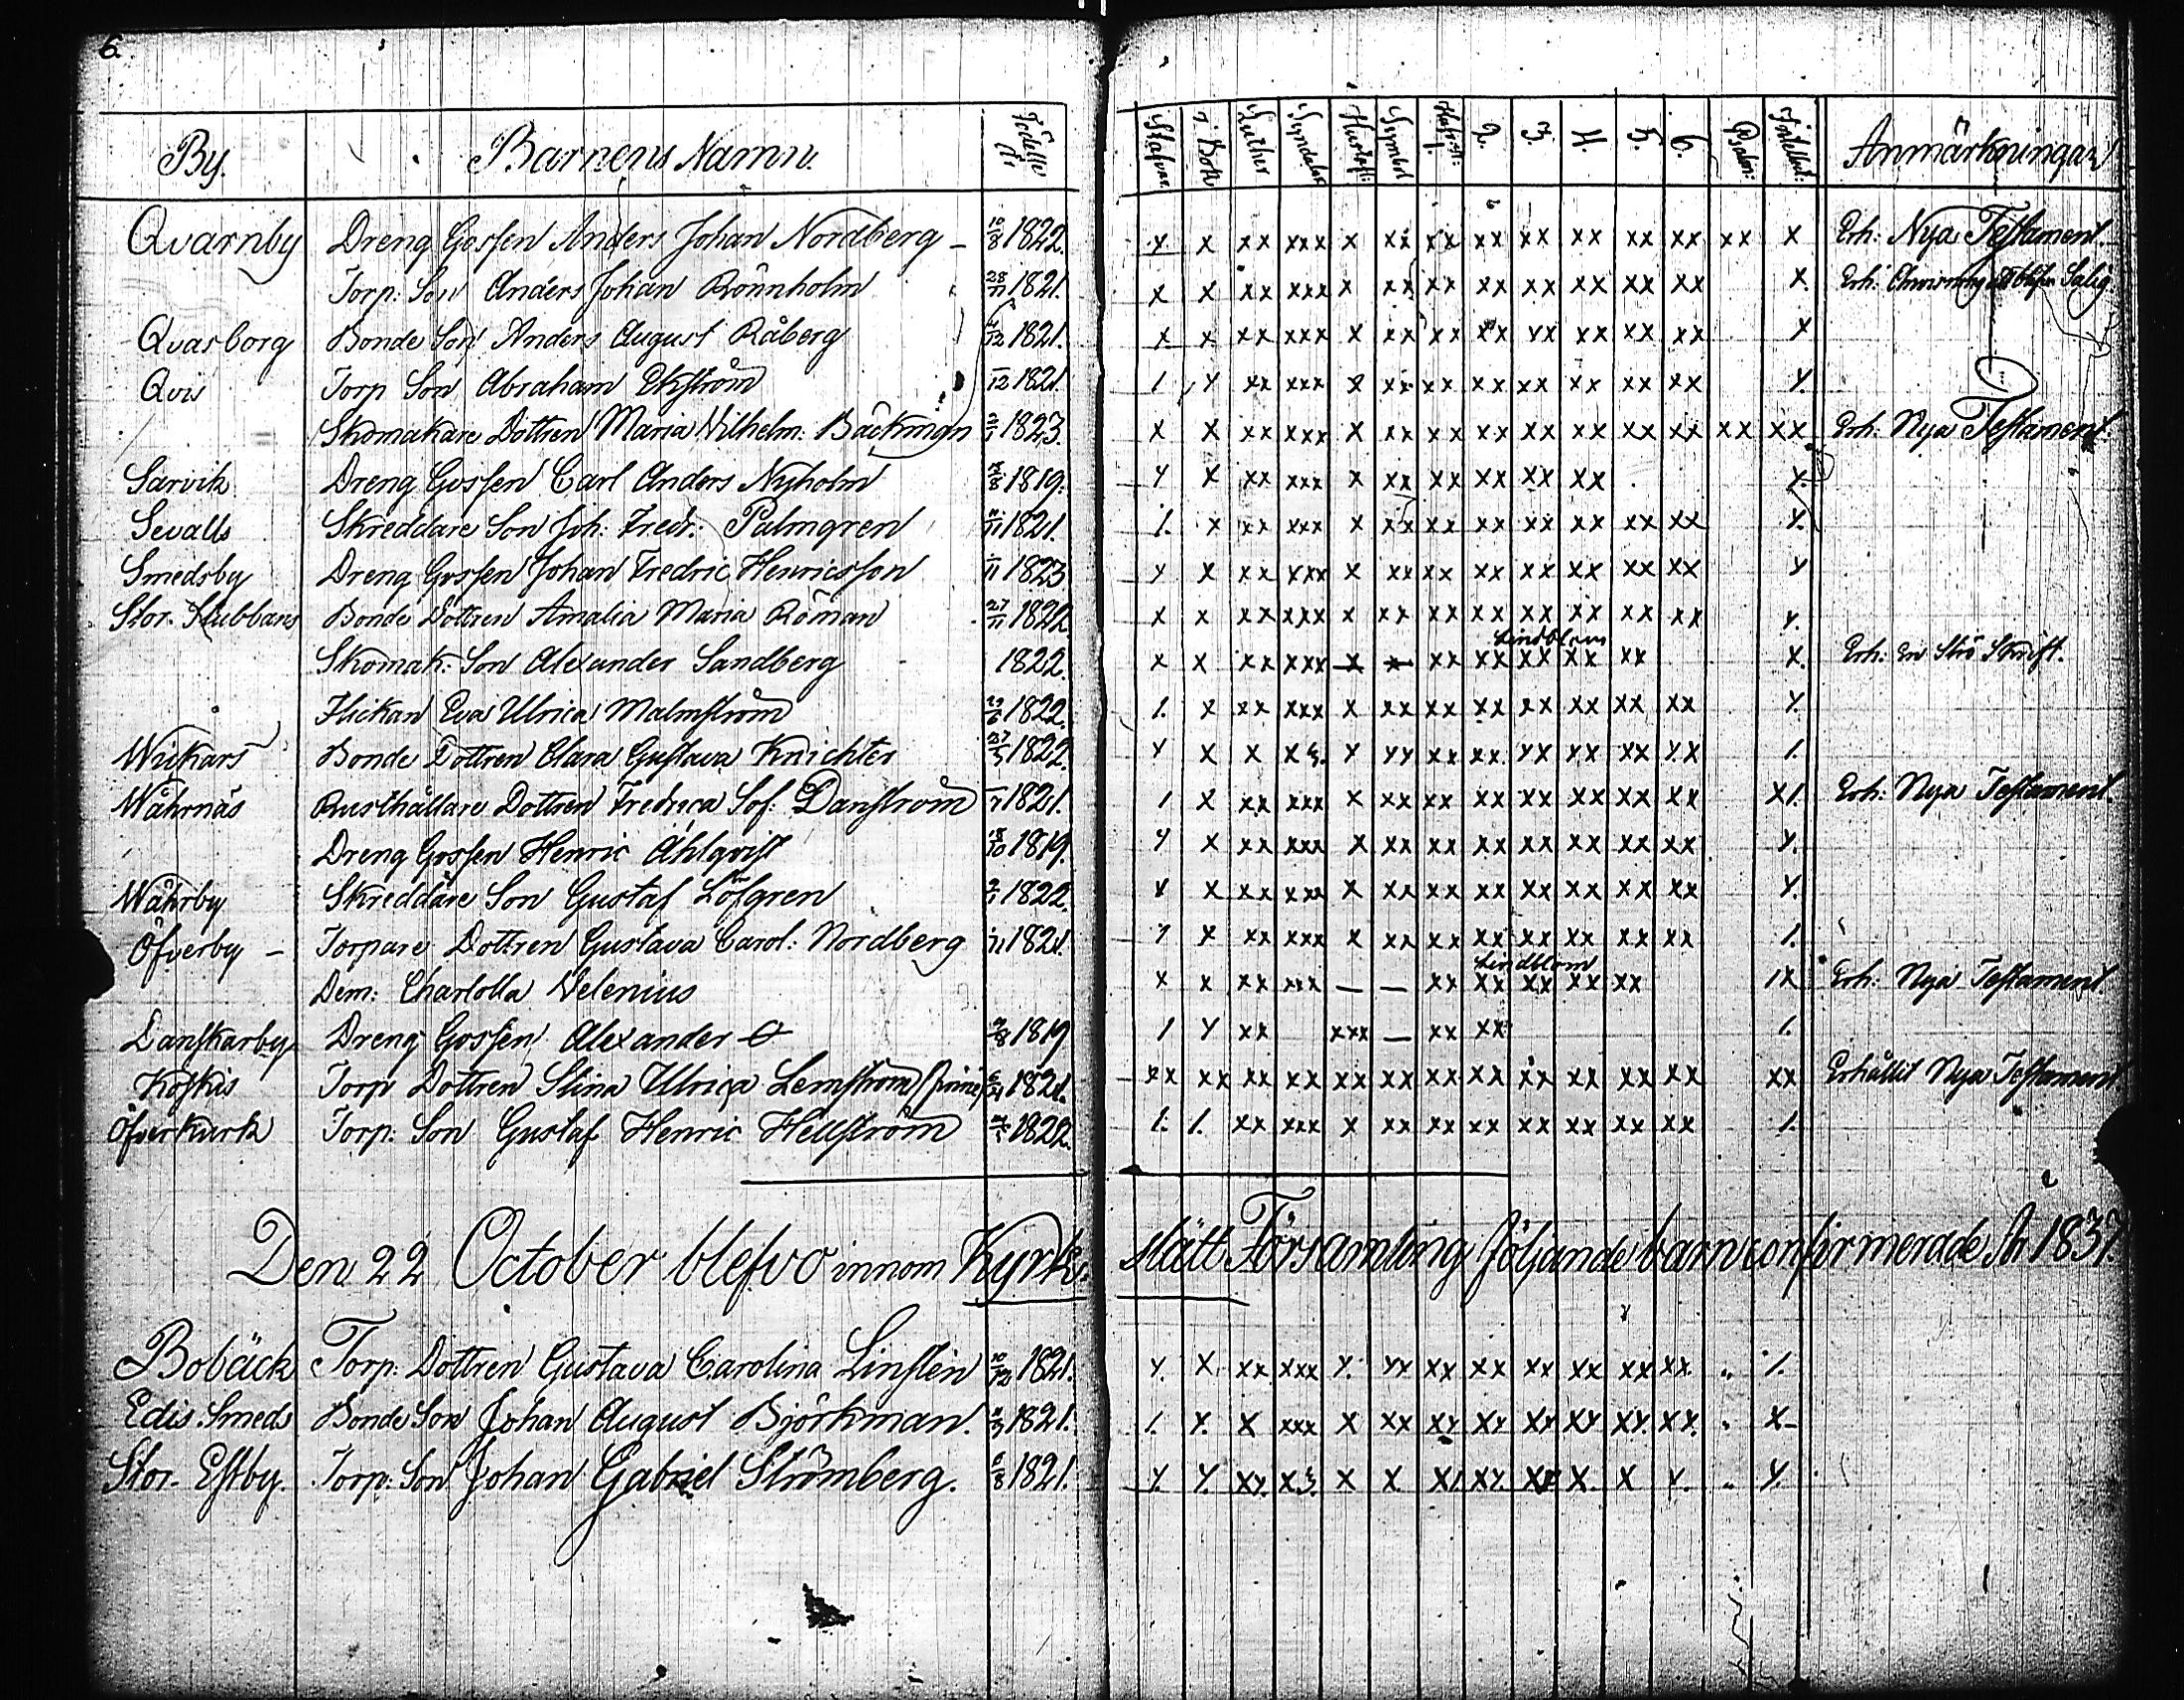 6.
By. Barnens Namn. Födelse År Stafvar. i Bok Luther Syndabek Hustafl: Symbol Hufvst: 2. 3. 4. 5. 6. Psalm: Förklar: Anmärkningar
Qvarnby Dreng Gossen Anders Johan Nordberg – 10/8 1822. x x xx xxx x xx xx xx xx xx xx xx xx x Erh: Nya Testament.
Torp: Son Anders Johan Rönnholm 28/11 1821. x x xx xxx x xx xx xx xx xx xx xx x. Erh: Salig.
Qvarborg Bonde Son Anders August Råberg 4/12 1821. x x xx xxx x xx xx xx xx xx xx xx x
Qvis Torp Son Abraham Ekström /12 1821. 1 x xx xxx x xx xx xx xx xx xx xx x.
Skomakare Dottren Maria Wilhelm: Bäckman 2/1 1823. x x xx xxx x xx xx xx xx xx xx xx xx xx Erh: Nya Testament.
Sarvik Dreng Gossen Carl Anders Nyholm 1819. x x xx xxx x xx xx xx xx xx x
Sevalls Skreddare Son Joh: Fredr: Palmgren 11/11 1821. 1. x xx xxx x xx xx xx xx xx xx xx x.
Smedsby Dreng Gossen Johan Fredric Henricsson /11 1823 x x xx xxx x xx xx xx xx xx xx xx x
Stor-Stubbans Bonde Dottren Amalia Maria Röman 27/11 1822. x x xx xxx x xx xx xx xx xx xx xx x.
Lindblom
Skomak: Son Alexander Sandberg 1822. x x xx xxx x x xx xx xx xx xx x. Erh: en Strö Skrift.
Flickan Eva Ulrica Malmström 29/6 1822. 1. x xx xxx x xx xx xx xx xx xx xx x.
Wickars Bonde Dottren Clara Gustava Knichter 27/5 1822. x x x x3. x xx xx xx. xx xx xx xx 1.
Wåhrnäs Rusthållare Dottren Fredrica Sof: Danström /7 1821. 1 x xx xxx x xx xx xx xx xx xx xx x1. Erh: Nya Testament.
Dreng Gossen Henric Ahlqvist 18/10 1819. x x xx xxx x xx xx xx xx xx xx xx x.
Wåhrby Skreddare Son Gustaf Löfgren 2/1 1822. x x xx xxx x xx xx xx xx xx xx xx x.
Öfverby – Torpare Dottren Gustava Carol: Nordberg /11 1821. 1 x xx xxx x xx xx xx xx xx xx xx 1.
Lindblom
Dem: Charlotta Velenius x x xx xxx — — xx xx xx xx xx 1x Erh: Nya Testament.
Danskarby Dreng Gossen Alexander 1819 1 x xx xxx — xx xx 1.
Koskis Torp Dottren Stina Ulrica Lemström 1821. xx xx xx xx xx xx xx xx xx xx xx xx xx Erhållit Nya Testament.
Öfverkurk Torp: Son Gustaf Henric Hellström 1822. 1. 1. xx xxx x xx xx xx xx xx xx xx 1.
Den 22 October blefvo innom Kyrkslätt Församling följande barn confirmerade År 1837.
Bobäck Torp: Dottren Gustava Carolina Linstén 10/12 1821. x. x. xx xxx x. xx xx xx xx xx xx xx. „ 1.
Edis Smeds Bonde Son Johan August Björkman. 1821. 1. x. x xxx x xx xx xx xx xx xx. xx. „ x–
Stor-Estby. Torp: Son Johan Gabriel Strömberg. 6/8 1821. x. x. xx. x3. x x x1. xx. xx x. x x. „ x.